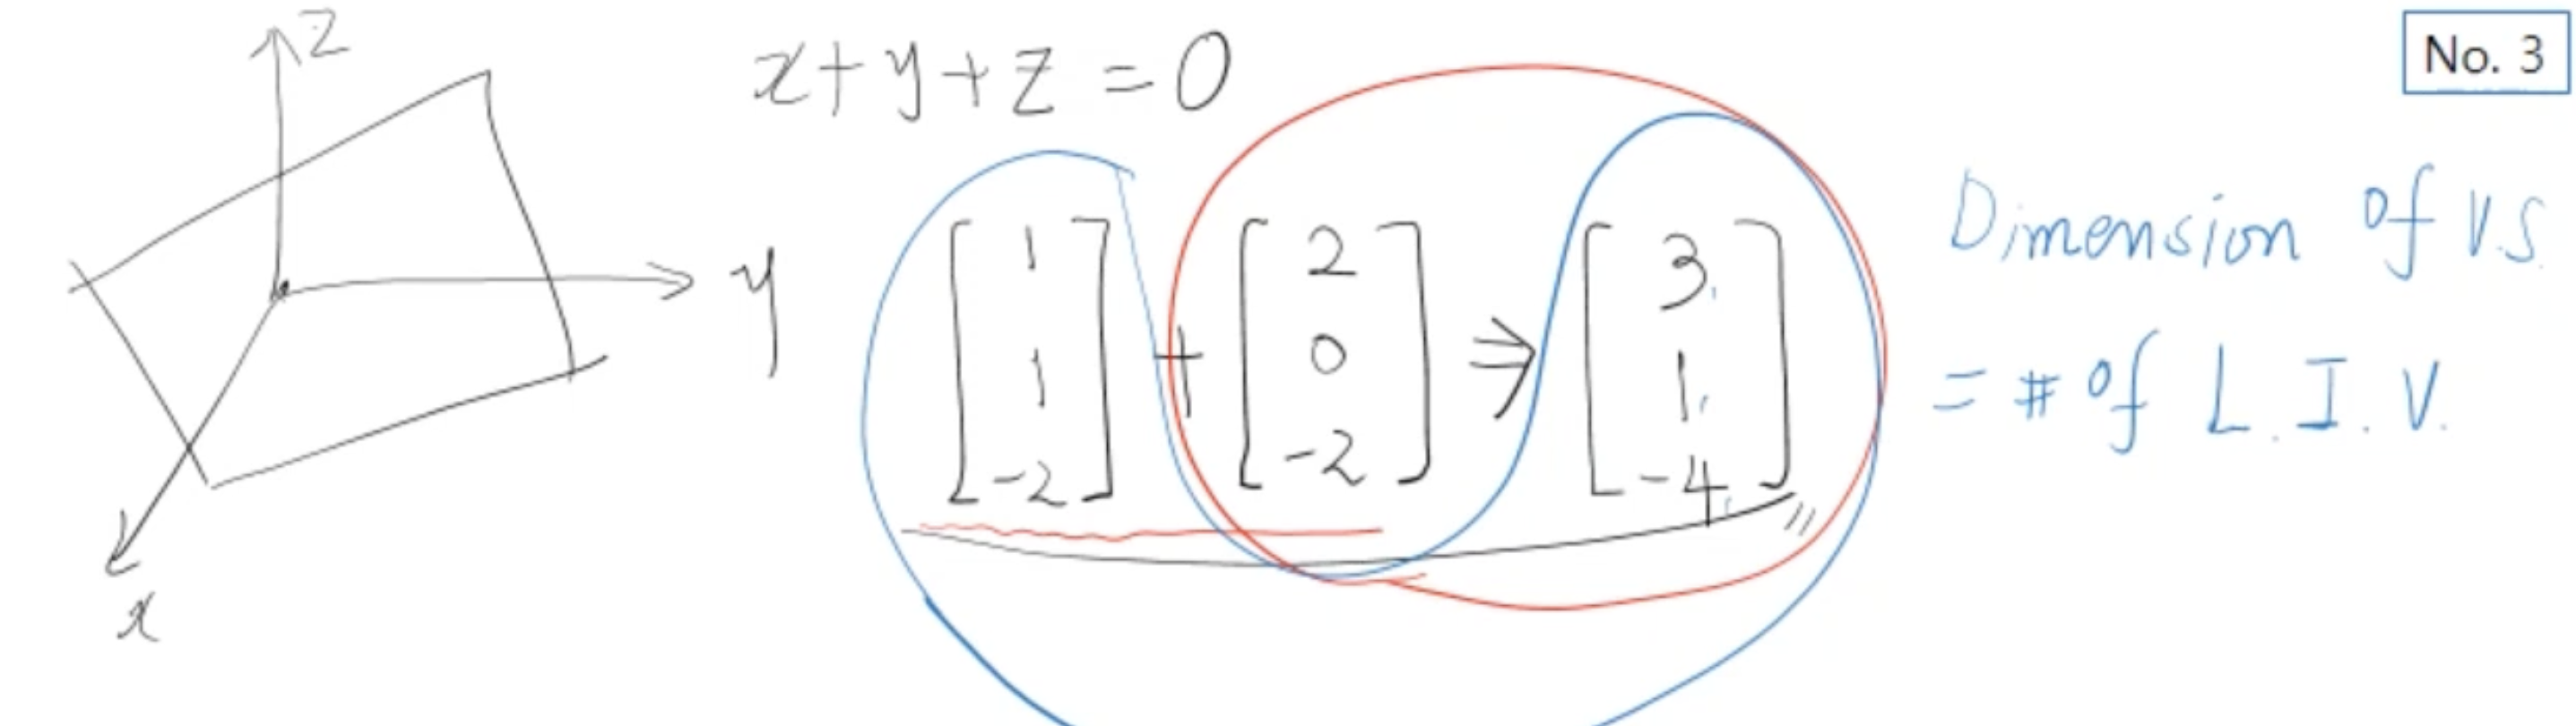 No. 3
z
x+y+z=0
y
x
[1 1 -2] + [2 0 -2] ⇒ [3 1 -4]
Dimension of V.S
= # of L.I.V.